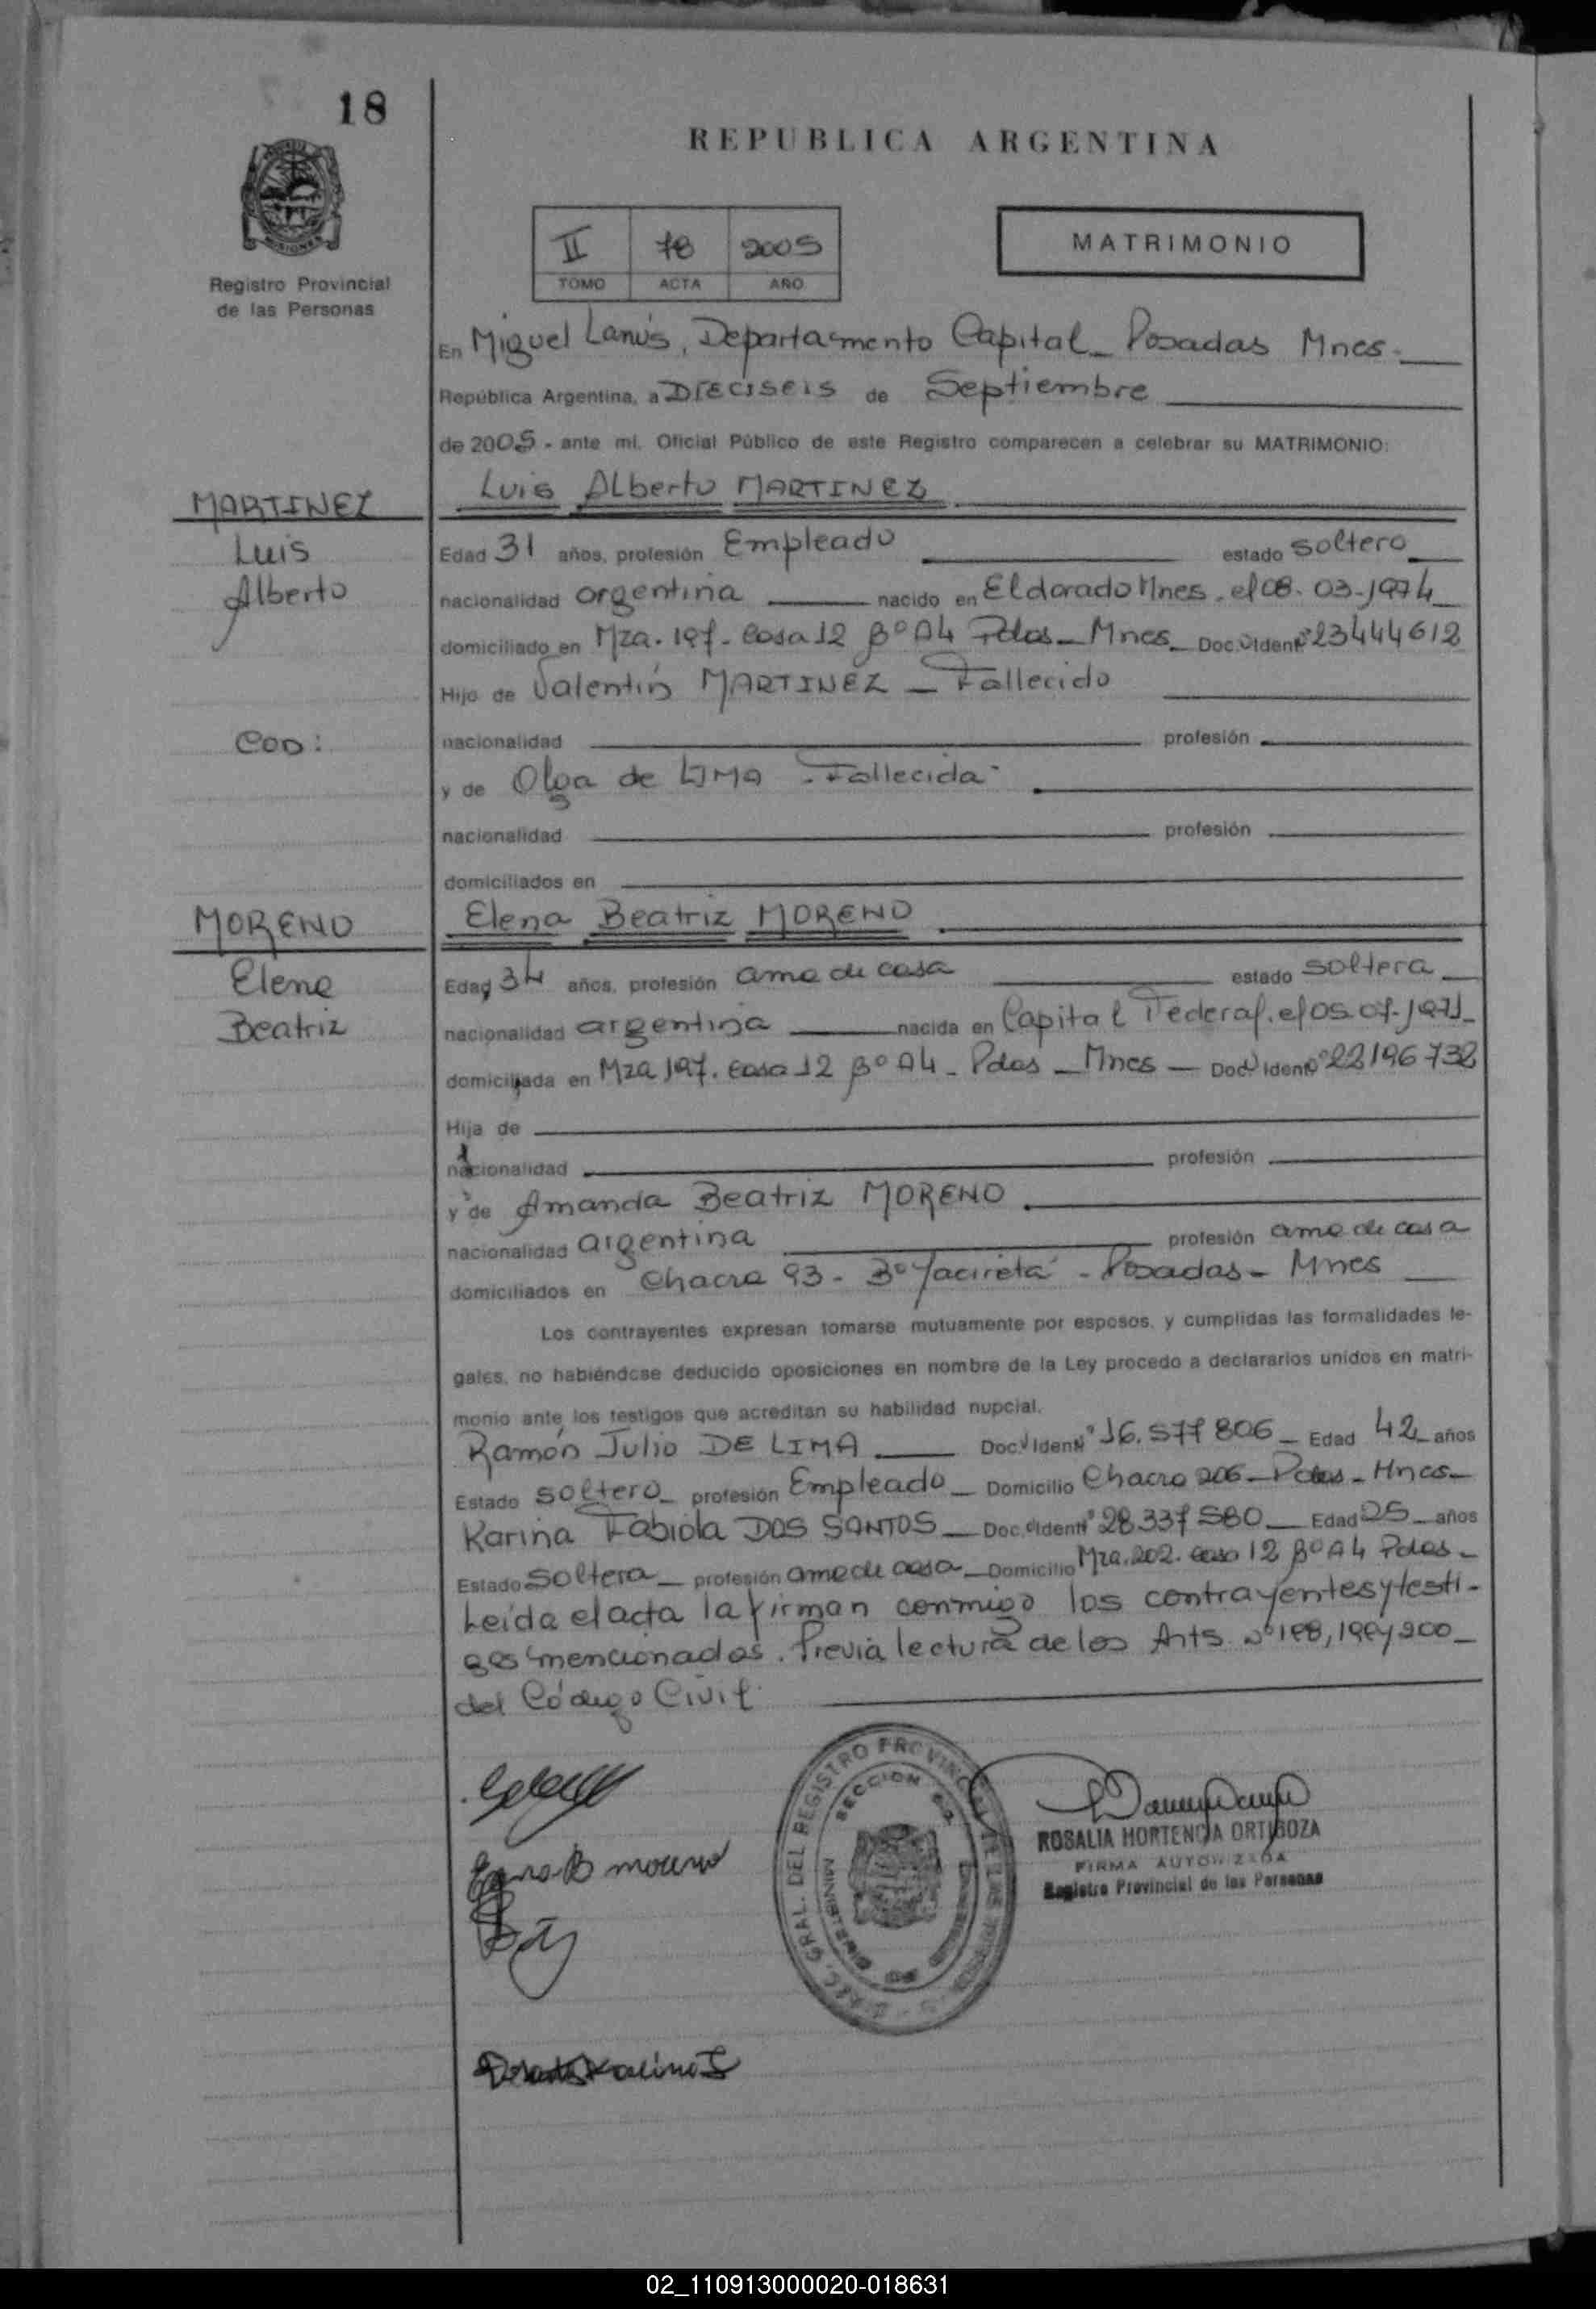 18
REPUBLICA ARGENTINA
II 78 2005
TOMO ACTA AÑO
MATRIMONIO
Registro Provincial
de las Personas
En Miguel Lanús, Departamento Capital - Posadas Mnes.
República Argentina, a DIECISEIS de Septiembre
de 2005 - ante mí, Oficial Público de este Registro comparecen a celebrar su MATRIMONIO:
Luis Alberto MARTINEZ
MARTINEZ
Luis
Alberto
Edad 31 años, profesión Empleado estado soltero
nacionalidad argentina nacido en Eldorado Mnes. el 08-03-1974
domiciliado en Mza. 197 - casa 12 Bº A4 Pdas - Mnes - Doc. Ident. Nº 23444612
Hijo de Valentín MARTINEZ - Fallecido
COD:
nacionalidad profesión
y de Olga de LIMA - Fallecida -
nacionalidad profesión
domiciliados en
Elena Beatriz MORENO
MORENO
Elena
Beatriz
Edad 34 años, profesión ama de casa estado soltera
nacionalidad argentina nacida en Capital Federal, el 05-07-1971
domiciliada en Mza 197. casa 12 Bº A4 - Pdas - Mnes - Doc. Ident. Nº 22196732
Hija de
nacionalidad profesión
y de Amanda Beatriz MORENO
nacionalidad argentina profesión ama de casa
domiciliados en Chacra 93 - Bº Yacireta - Posadas - Mnes
Los contrayentes expresan tomarse mutuamente por esposos, y cumplidas las formalidades le-
gales, no habiéndose deducido oposiciones en nombre de la Ley procedo a declararlos unidos en matri-
monio ante los testigos que acreditan su habilidad nupcial.
Ramón Julio DE LIMA Doc. Ident. Nº 16.577806 - Edad 42 años
Estado soltero - profesión Empleado - Domicilio Chacra 206 - Pdas - Mnes -
Karina Fabiola DOS SANTOS - Doc. Ident. Nº 28.337580 - Edad 25 - años
Estado soltera - profesión ama de casa - Domicilio Mza. 202. casa 12 Bº A4 Pdas -
Leída el acta la firman conmigo los contrayentes y testi-
gos mencionados. Previa lectura de los Arts. Nº 198, 199 y 200 -
del Código Civil.
Elena B moreno
DIREC. GRAL. DEL REGISTRO PROVINCIAL DE LAS PERSONAS
SECCION
MINISTERIO DE GOBIERNO
ROSALIA HORTENCIA ORTIGOZA
FIRMA AUTORIZADA
Registro Provincial de las Personas
Karina F
02_110913000020-018631